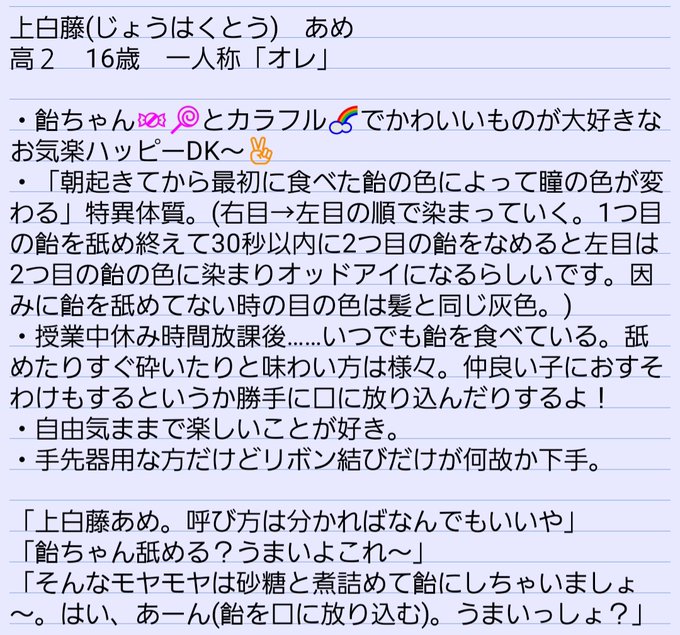 上白藤(じょうはくとう)　あめ
高２　16歳　一人称「オレ」
・飴ちゃん🍬🍭とカラフル🌈でかわいいものが大好きな
お気楽ハッピーDK〜✌
・「朝起きてから最初に食べた飴の色によって瞳の色が変
わる」特異体質。(右目→左目の順で染まっていく。1つ目
の飴を舐め終えて30秒以内に2つ目の飴をなめると左目は
2つ目の飴の色に染まりオッドアイになるらしいです。因
みに飴を舐めてない時の目の色は髪と同じ灰色。)
・授業中休み時間放課後……いつでも飴を食べている。舐
めたりすぐ砕いたりと味わい方は様々。仲良い子におすそ
わけもするというか勝手に口に放り込んだりするよ！
・自由気ままで楽しいことが好き。
・手先器用な方だけどリボン結びだけが何故か下手。
「上白藤あめ。呼び方は分かればなんでもいいや」
「飴ちゃん舐める？うまいよこれ〜」
「そんなモヤモヤは砂糖と煮詰めて飴にしちゃいましょ
〜。はい、あーん(飴を口に放り込む)。うまいっしょ？」